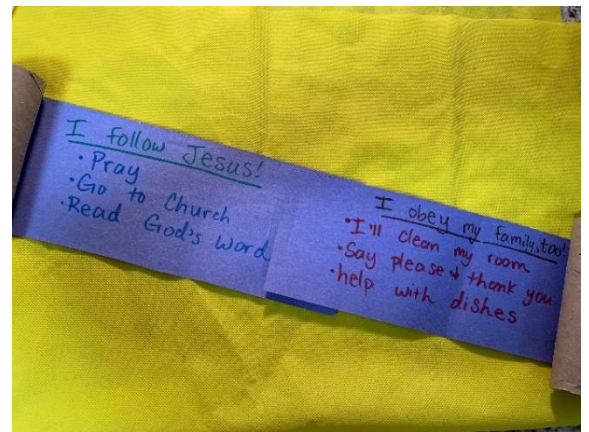 I follow Jesus!
• Pray
• Go to Church
• Read God's Word
I obey my family, too!
• I'll clean my room
• Say please & thank you
• help with dishes